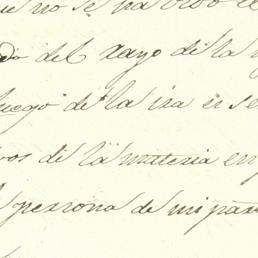 que no se ha
do del rayo de la
luego de la ira en se
os de la materia en
persona de mi pa